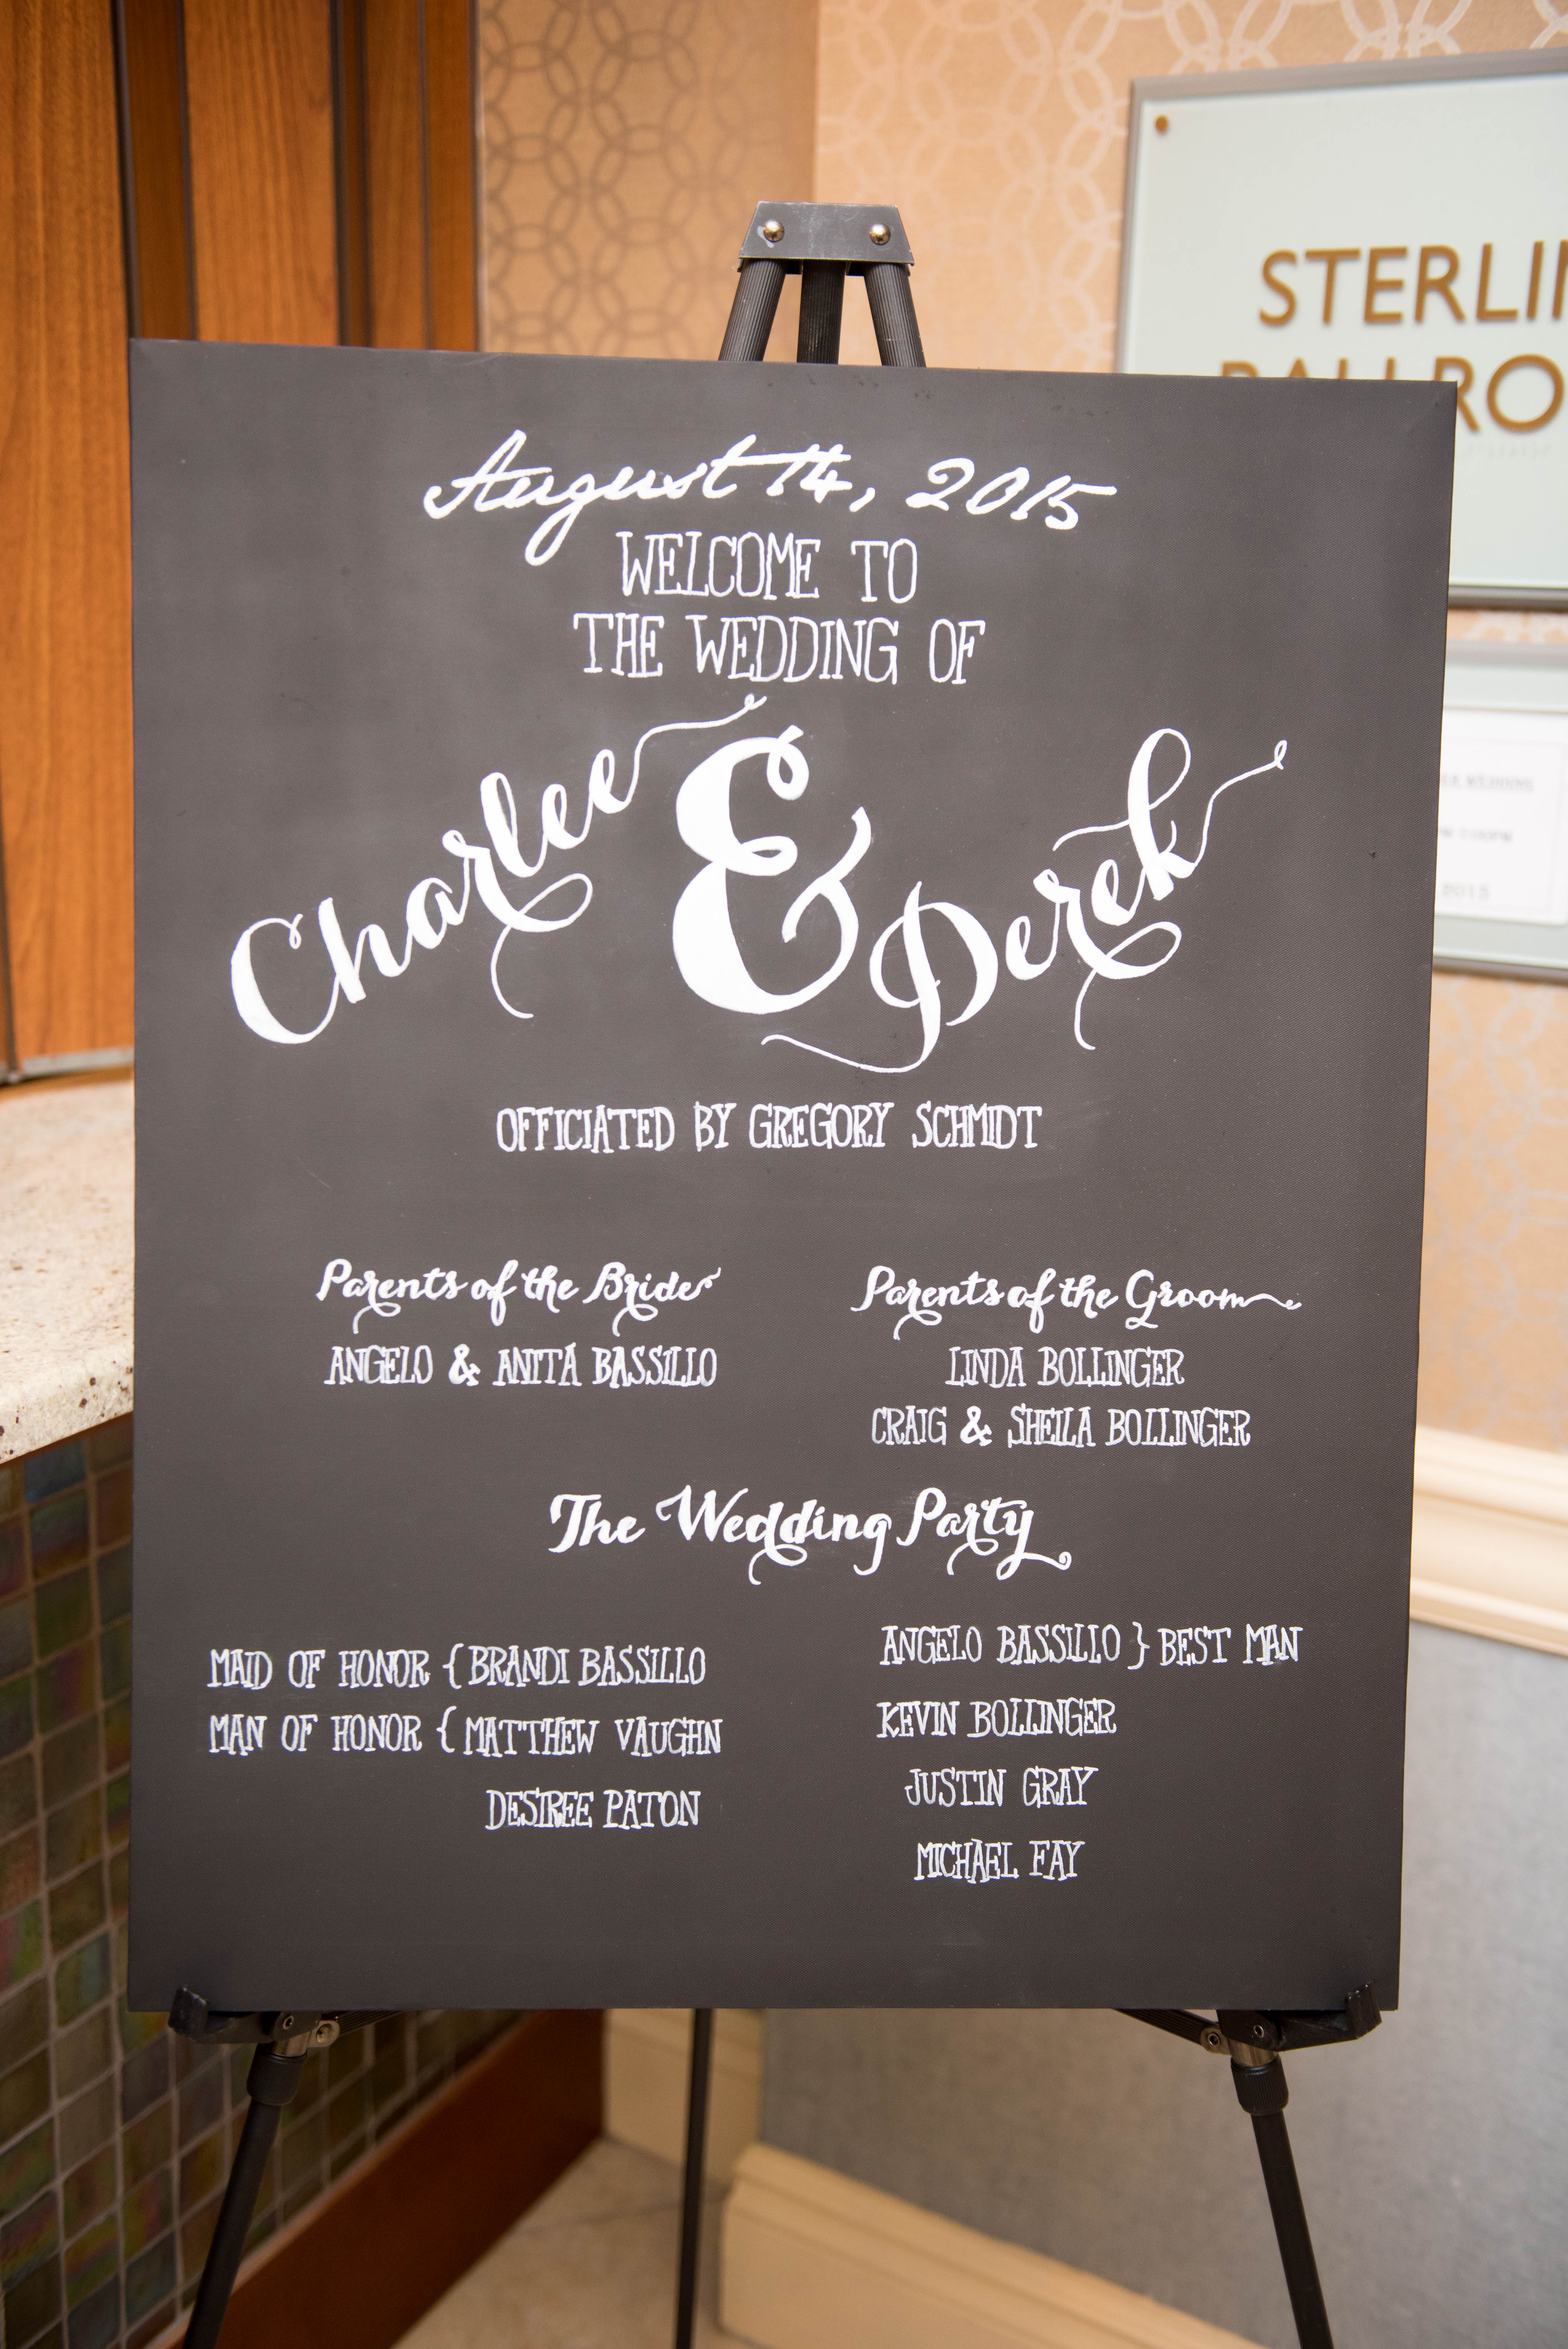 STERLI
RO
August 14, 2015
WELCOME TO
THE WEDDING OF
Charlee & Derek
OFFICIATED BY GREGORY SCHMIDT
Parents of the Bride
ANGELO & ANITA BASSILLO
Parents of the Groom
LINDA BOLLINGER
CRAIG & SHEILA BOLLINGER
The Wedding Party
MAID OF HONOR { BRANDI BASSILLO
MAN OF HONOR { MATTHEW VAUGHN
DESIREE PATON
ANGELO BASSILLO } BEST MAN
KEVIN BOLLINGER
JUSTIN GRAY
MICHAEL FAY
WEDDING
2015